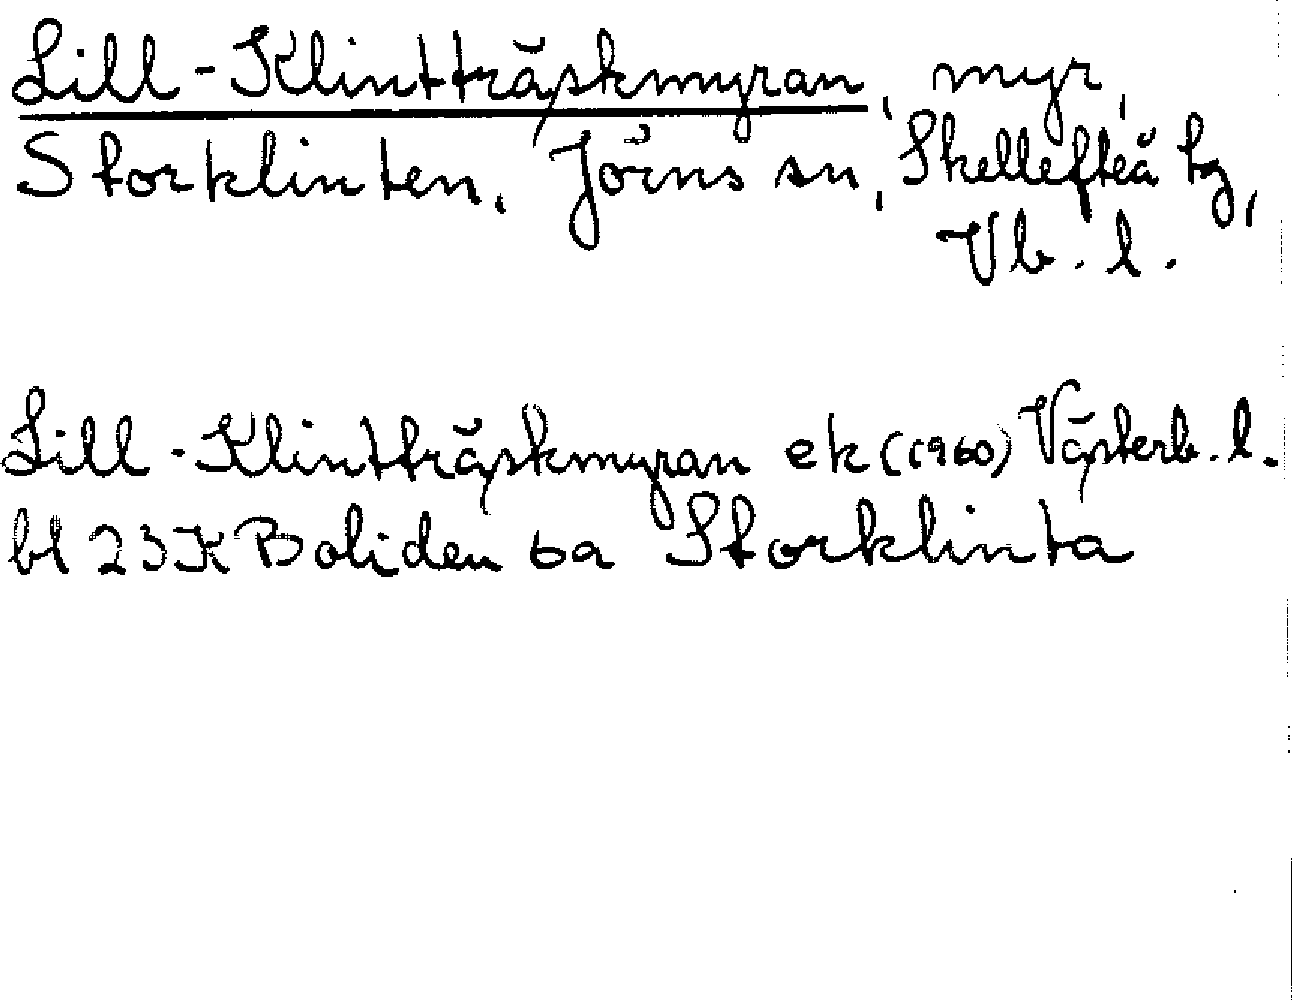 Lill-Klintträskmyran, myr,
Storklinten, Jörns sn, Skellefteå tg,
Vb. l.
Lill-Klintträskmyran ek (1960) Västerb. l.
bl 23K Boliden 6a Storklinta